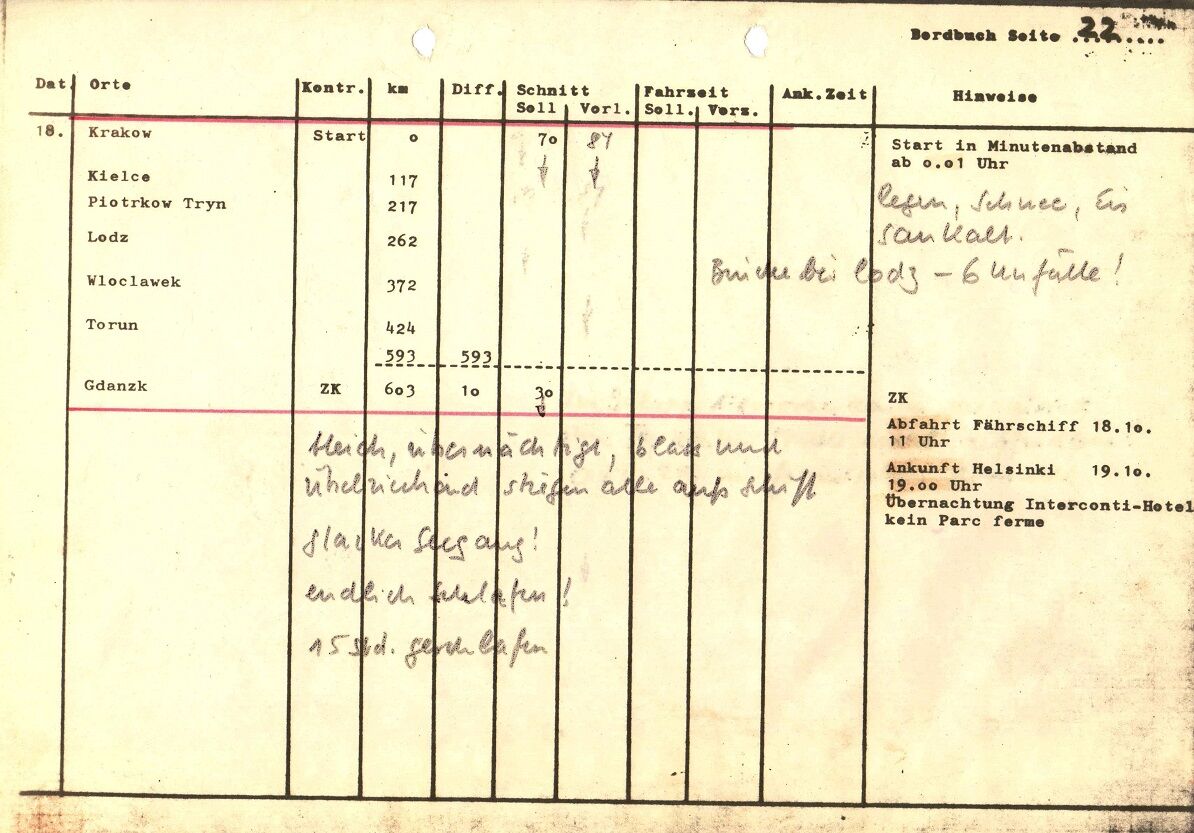 Bordbuch Seite ..22......
Dat. Orte Kontr. km Diff. Schnitt Fahrzeit Ank.Zeit Hinweise
Soll Vorl. Soll. Verz.
18. Krakow Start o 7o 84 Start in Minutenabstand
ab o.o1 Uhr
Kielce 117
Piotrkow Tryn 217 Regen, Schnee, Eis
Lodz 262 saukalt.
Wloclawek 372 Brücke bei Lodz – 6 Unfälle!
Torun 424
593 593
Gdanzk ZK 6o3 1o 3o ZK
Abfahrt Fährschiff 18.1o.
11 Uhr
Ankunft Helsinki 19.1o.
19.oo Uhr
Übernachtung Interconti-Hotel
kein Parc ferme
bleich, übernächtigt, blass und
übelriechend steigen alle aufs Schiff
starker Seegang!
endlich schlafen!
15 Std. geschlafen